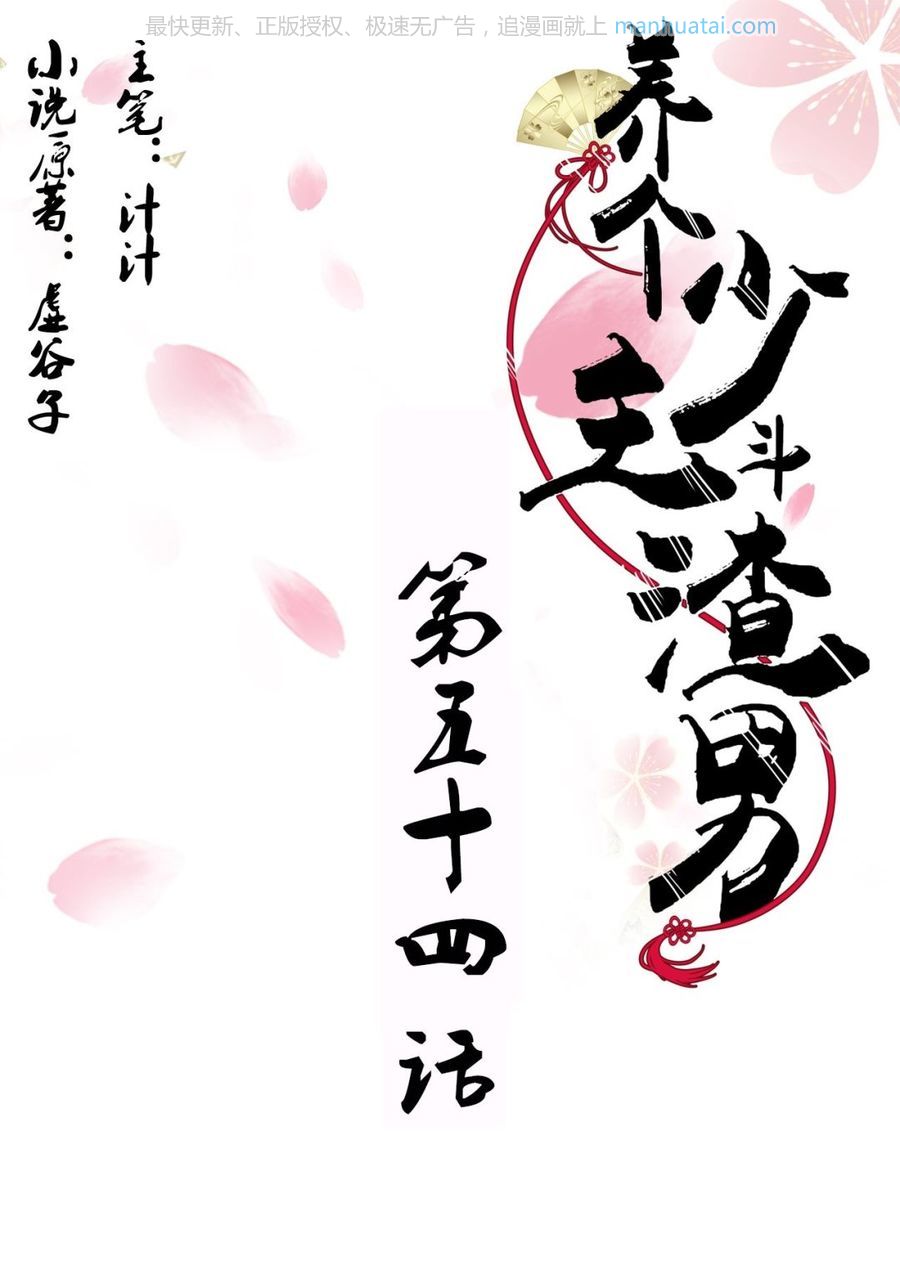 最快更新、正版授权、极速无广告，追漫画就上 manhuatai.com
养个少主斗渣男
第五十四话
主笔：汁汁
小说原著：虚谷子